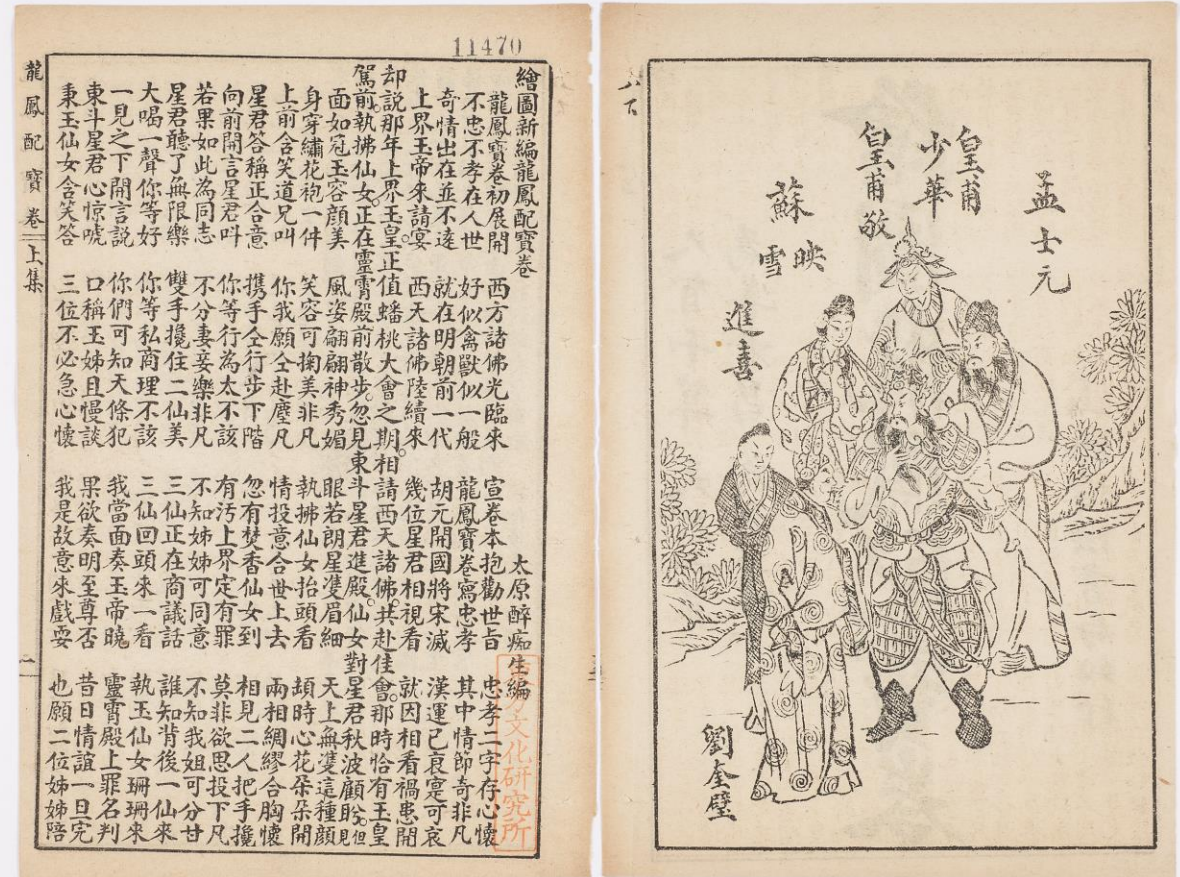 孟士元
皇甫少華
皇甫敬
蘇映雪
進喜
劉奎璧
11470
繪圖新編龍鳳配寶卷 太原醉痴生編
龍鳳寶卷初展開 西方諸佛光臨來 宣卷本抱勸世旨 忠孝二字存心懷
不忠不孝在人世 好似禽獸似一般 龍鳳寶卷寫忠孝 其中情節奇非凡
奇情出在並不遠 就在明朝前一代 胡元開國將宋滅 漢運已衰寔可哀
上界玉帝來請宴 西天諸佛陸續來 幾位星君相視看 就因相看禍患開
却說那年上界玉皇。正值蟠桃大會之期。相請西天諸佛。共赴佳會。那時恰有玉皇
駕前。執拂仙女。正在靈霄殿前散步。忽見東斗星君進殿。仙女對星君秋波顧盼。但見
面如冠玉容顏美 風姿翩翩神秀媚 眼若朗星雙眉細 天上無雙這種顏
身穿繡花袍一件 笑容可掬美非凡 執拂仙女抬頭看 頃時心花朵朵開
上前含笑道兄叫 你我願仝赴塵凡 情投意合世上去 兩相綢繆合胸懷
星君答稱正合意 携手仝行步下階 忽有焚香仙女到 相見二人把手攙
向前開言星君呌 你等行為太不該 有污上界定有罪 莫非欲思投下凡
若果如此為同志 不分妻妾樂非凡 不知姊姊可同意 不知我姐可分甘
星君聽了無限樂 雙手攙住二仙美 三仙正在商議話 誰知背後一仙來
大喝一聲你等好 你等私商理不該 三仙回頭來一看 執玉仙女珊珊來
一見之下開言說 你們可知天條犯 我當面奏玉帝曉 靈霄殿上罪名判
東斗星君心惊唬 口稱玉姊且慢談 果欲奏明至尊否 昔日情誼一旦完
秉玉仙女含笑答 三位不必急心懷 我是故意來戲耍 也願二位姊姊陪
龍鳳配寶卷 上集 一
方文化研究所